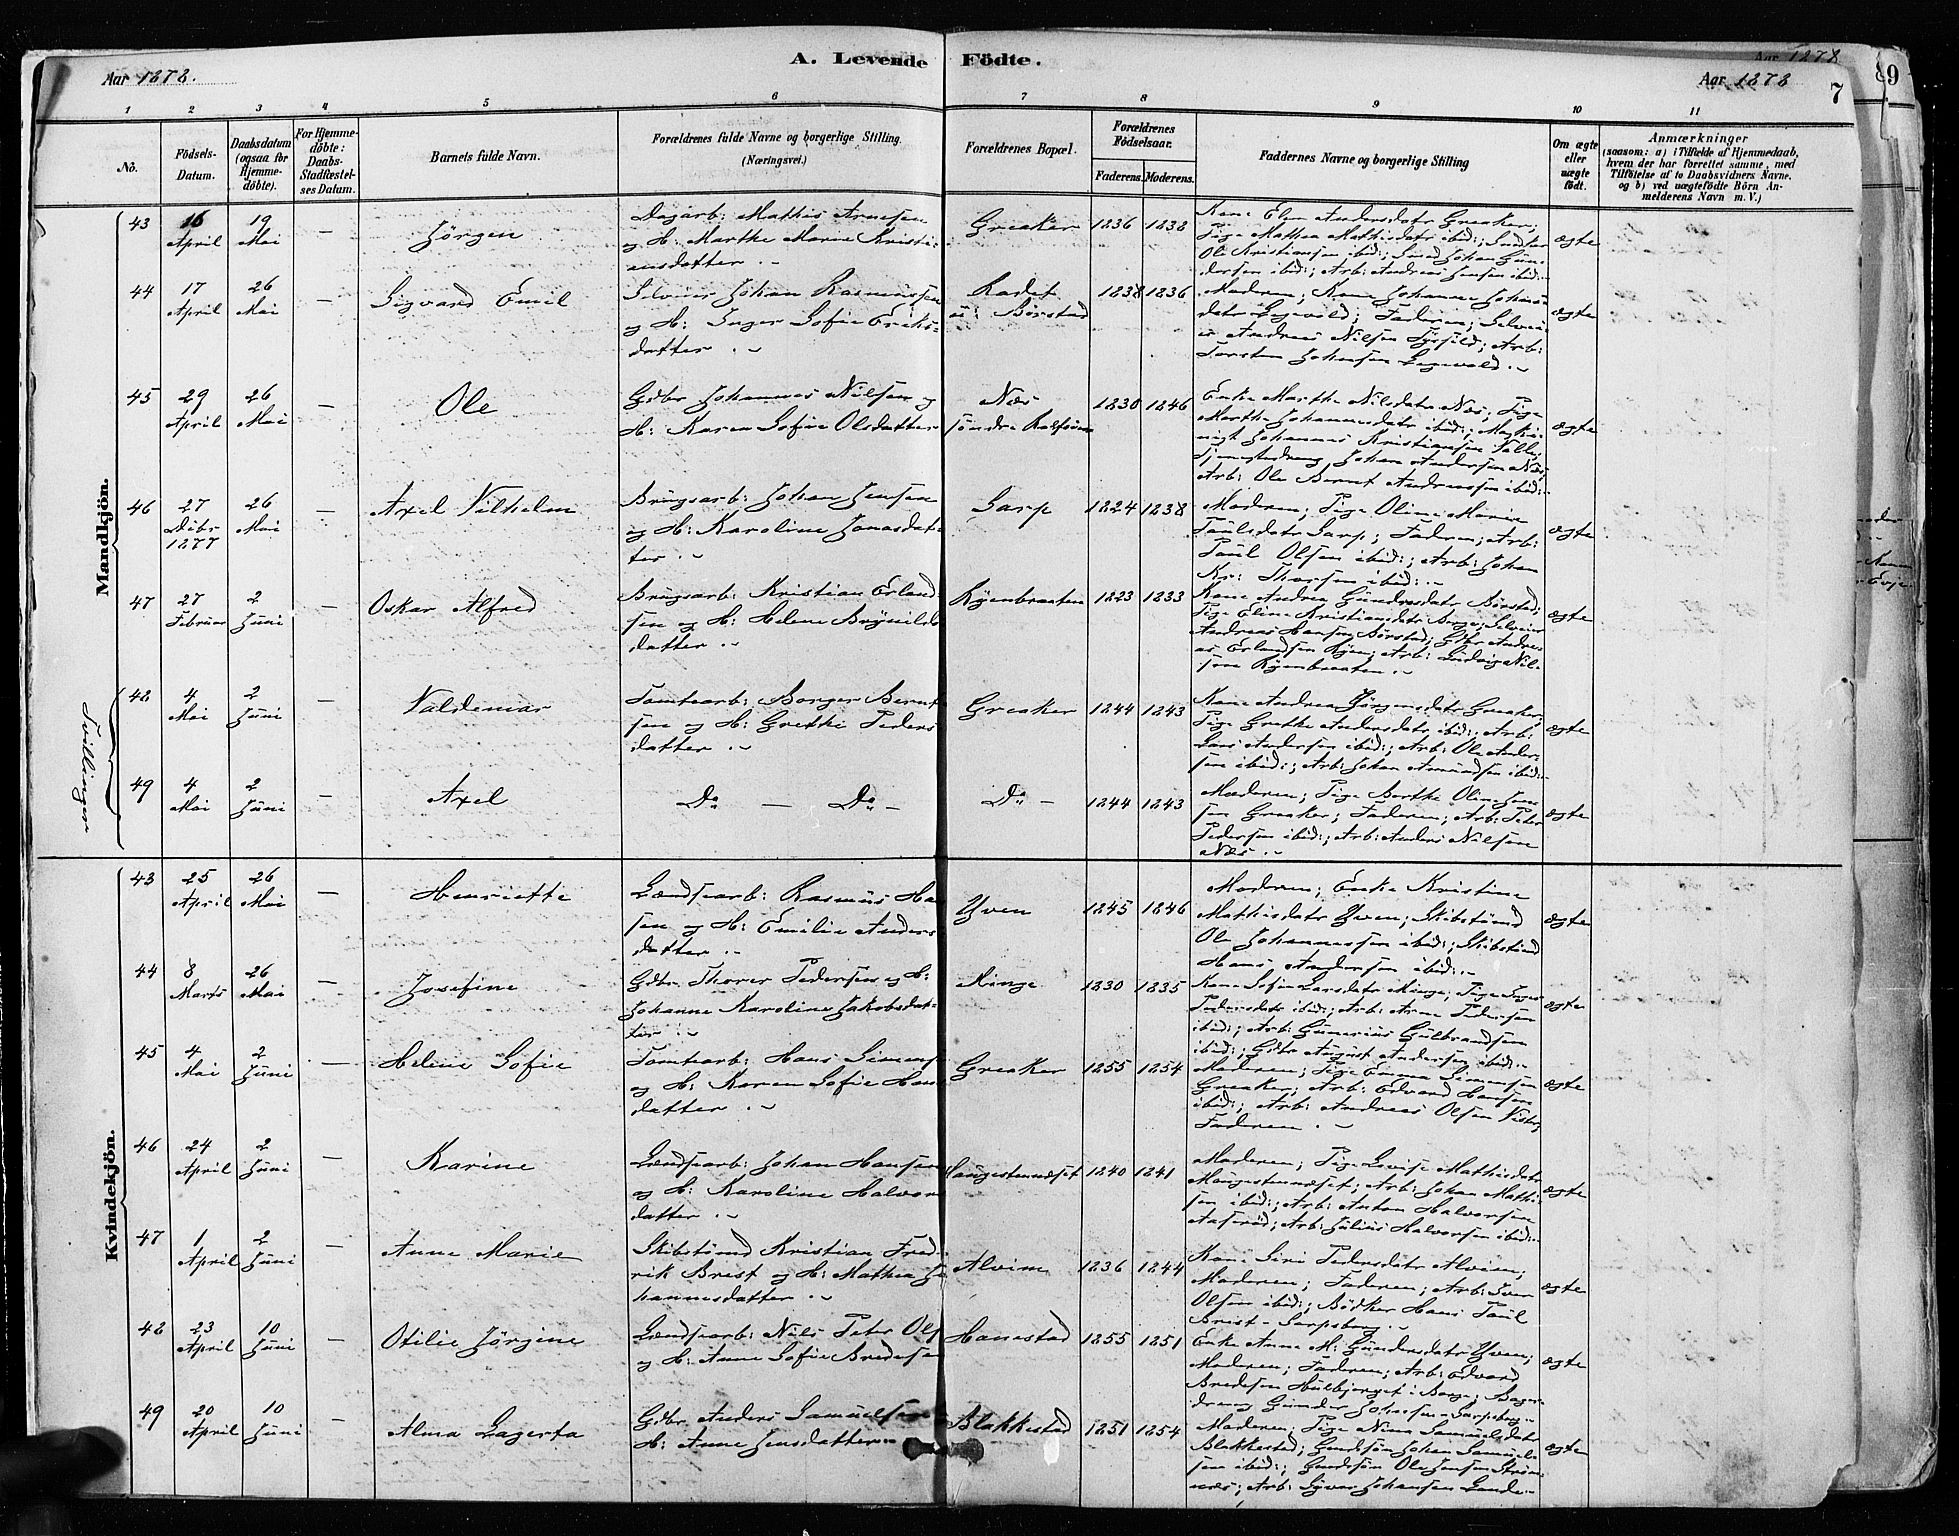 A. Levende Födte.
Aar 1878.
Aar 1878
Aar 1878
7
89
1 2 3 4 5 6 7 8 9 10 11
No.
Födsels-Datum.
Daabsdatum (ogsaa för Hjemmedöbte).
For Hjemmedöbte: Daabs-Stadfæstelses Datum.
Barnets fulde Navn.
Forældrenes fulde Navne og borgerlige Stilling. (Næringsvei.)
Forældrenes Bopæl.
Forældrenes Födselsaar.
Faderens. Moderens.
Faddernes Navne og borgerlige Stilling
Om ægte eller uægte födt.
Anmærkninger
(saasom: a) i Tilfælde af Hjemmedaab, hvem der har forrettet samme, med Tilföielse af to Daabsvidners Navne. og b) ved uægtefödte Börn Anmelderens Navn m. V.)
Mandkjön.
43 16 April 19 Mai — Jörgen
Dagarb: Mathis Arnesen
og H: Marthe Marie Kristi-
ansdatter.
Greaker 1836 1838
Kone Elen Andersdatr Greaker;
Pige Mathea Mathisdatr ibid:; Snedker
Ole Kristiansen ibid:; Smed Johan Gun-
dersen ibid:; Arb: Andreas Jensen ibid:
ægte
44 17 April 26 Mai — Sigvard Emil
Selveier Johan Rasmussen
og H: Inger Sofie Eriks-
datter.
Rødet u: Børstad 1838 1836
Moderen; Kone Johanne Johans-
datr; Faderen; Selvei-
er Andreas Nilsen; Arb:
Torsten Johansen
ægte
45 29 April 26 Mai — Ole
Gdbr Johannes Nilsen og
H: Karen Sofie Olsdatter
Næs søndre 1830 1846
Enke Marthe Nilsdatr Næs; Pige
Marthe Johannesdatr ibid:; Maski-
nist Johannes Kristiansen Valle;
Tjenestedreng Johan Andersen Næs;
Arb: Ole Bernt Andreassen ibid:
ægte
46 27 Debr 1877 26 Mai — Axel Vilhelm
Brugsarb: Johan Jensen
og H: Karoline Jonasdat-
ter.
Sarp 1824 1838
Moderen; Pige Oline Marie
Paulsdatr Sarp; Faderen; Arb:
Paul Olsen ibid:; Arb: Johan
Kr: Thorsen ibid:
ægte
47 27 Februar 2 Juni — Oskar Alfred
Brugsarb: Kristian Erland-
sen og H: Helene Brynilds-
datter.
Ryenbraaten 1823 1833
Kone Andrea Gundersdatr Børstad;
Pige Eline Kristiansdatr Borge; Selveier
Andreas Hansen Børstad; Gdbr Andre-
as Erlandsen Ryen; Arb: Ludvig Nil-
sen Ryenbraaten.
ægte
Tvillinger
48 4 Mai 2 Juni — Valdemar
Tomtearb: Borger Bernt-
sen og H: Grethe Peders-
datter.
Greaker 1844 1843
Kone Andrea Jörgensdatr Greaker;
Pige Grethe Andersdatr ibid:; Arb:
Lars Andersen ibid:; Arb: Ole Ander-
sen ibid:; Arb: Johan Amundsen ibid:
ægte
49 4 Mai 2 Juni — Axel
Do — Do —
Do — 1844 1843
Moderen; Pige Berthe Oline Jen-
sen Greaker; Faderen; Arb: Peter
Pedersen ibid:; Arb: Anders Nilsen
Næs.
ægte
Kvindekjön.
43 25 April 26 Mai — Henriette
Lændsearb: Rasmus Han-
sen og H: Emilie Anders-
datter.
Yven 1845 1846
Moderen; Enke Kristine
Mathisdatr Yven; Skibstømd
Ole Johannessen ibid:; Skibstømd
Hans Andersen ibid:
ægte
44 8 Marts 26 Mai — Josefine
Gdbr Thorer Pedersen og H:
Johanne Karoline Jakobsdat-
ter.
Minge 1830 1835
Kone Sofie Larsdatr Minge; Pige Inger
Pedersdatr ibid:; Arb: Arne Pedersen
ibid:; Arb: Gunerius Gulbrandsen
ibid:; Gdbr August Andersen ibid:
ægte
45 4 Mai 2 Juni — Helene Sofie
Tomtearb: Hans Simens
og H: Karen Sofie Hans-
datter.
Greaker 1855 1854
Moderen; Pige Emma Simensen
Greaker; Arb: Edvard Hansen
ibid:; Arb: Andreas Olsen Vister;
Faderen.
ægte
46 24 April 2 Juni — Karine
Lændsearb: Johan Hansen
og H: Karoline Halvors-
datter.
Haugestenræset 1840 1841
Moderen; Pige Lovise Mathisdatr
Haugestenræset; Arb: Johan Mathi-
sen ibid:; Arb: Anton Halvorsen
Aaserød; Arb: Julius Halvorsen ibid:
ægte
47 1 April 2 Juni — Anne Marie
Skibstømd Kristian Fred-
rik Brest og H: Mathea Jo-
hannesdatter.
Alvim 1836 1844
Kone Siri Pedersdatr Alvim;
Moderen; Faderen; Arb: Iver
Olsen ibid:; Bødker Hans Paul
Brest - Sarpsborg.
ægte
48 23 April 10 Juni — Otilie Jörgine
Lændsearb: Nils Peter Ols
og H: Anne Sofie Bredesen
Hanestad 1855 1851
Enke Anne M: Gundersdatr Yven;
Moderen; Faderen; Arb: Edvard
Bredesen Hulbjerget i Borge; Bager-
dreng Gunder Johansen - Sarpsborg.
ægte
49 20 April 10 Juni — Alma Lagerta
Gdbr Anders Samuelsen
H: Anne Jensdatter
Blakkestad 1851 1854
Moderen; Pige Nina Samuelsdatr
Blakkestad; Gaardssøn Johan Samuel-
sen ibid:; Gaardssøn Ole Jensen Strøm-
næs; Arb: Syver Johansen Lande.
ægte